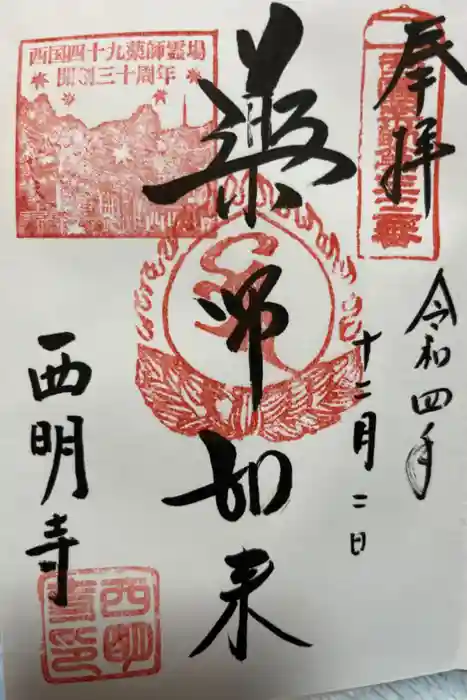 奉拝
令和四年
十二月二日
薬師如来
西国四十九薬師霊場
開創三十周年
西明寺